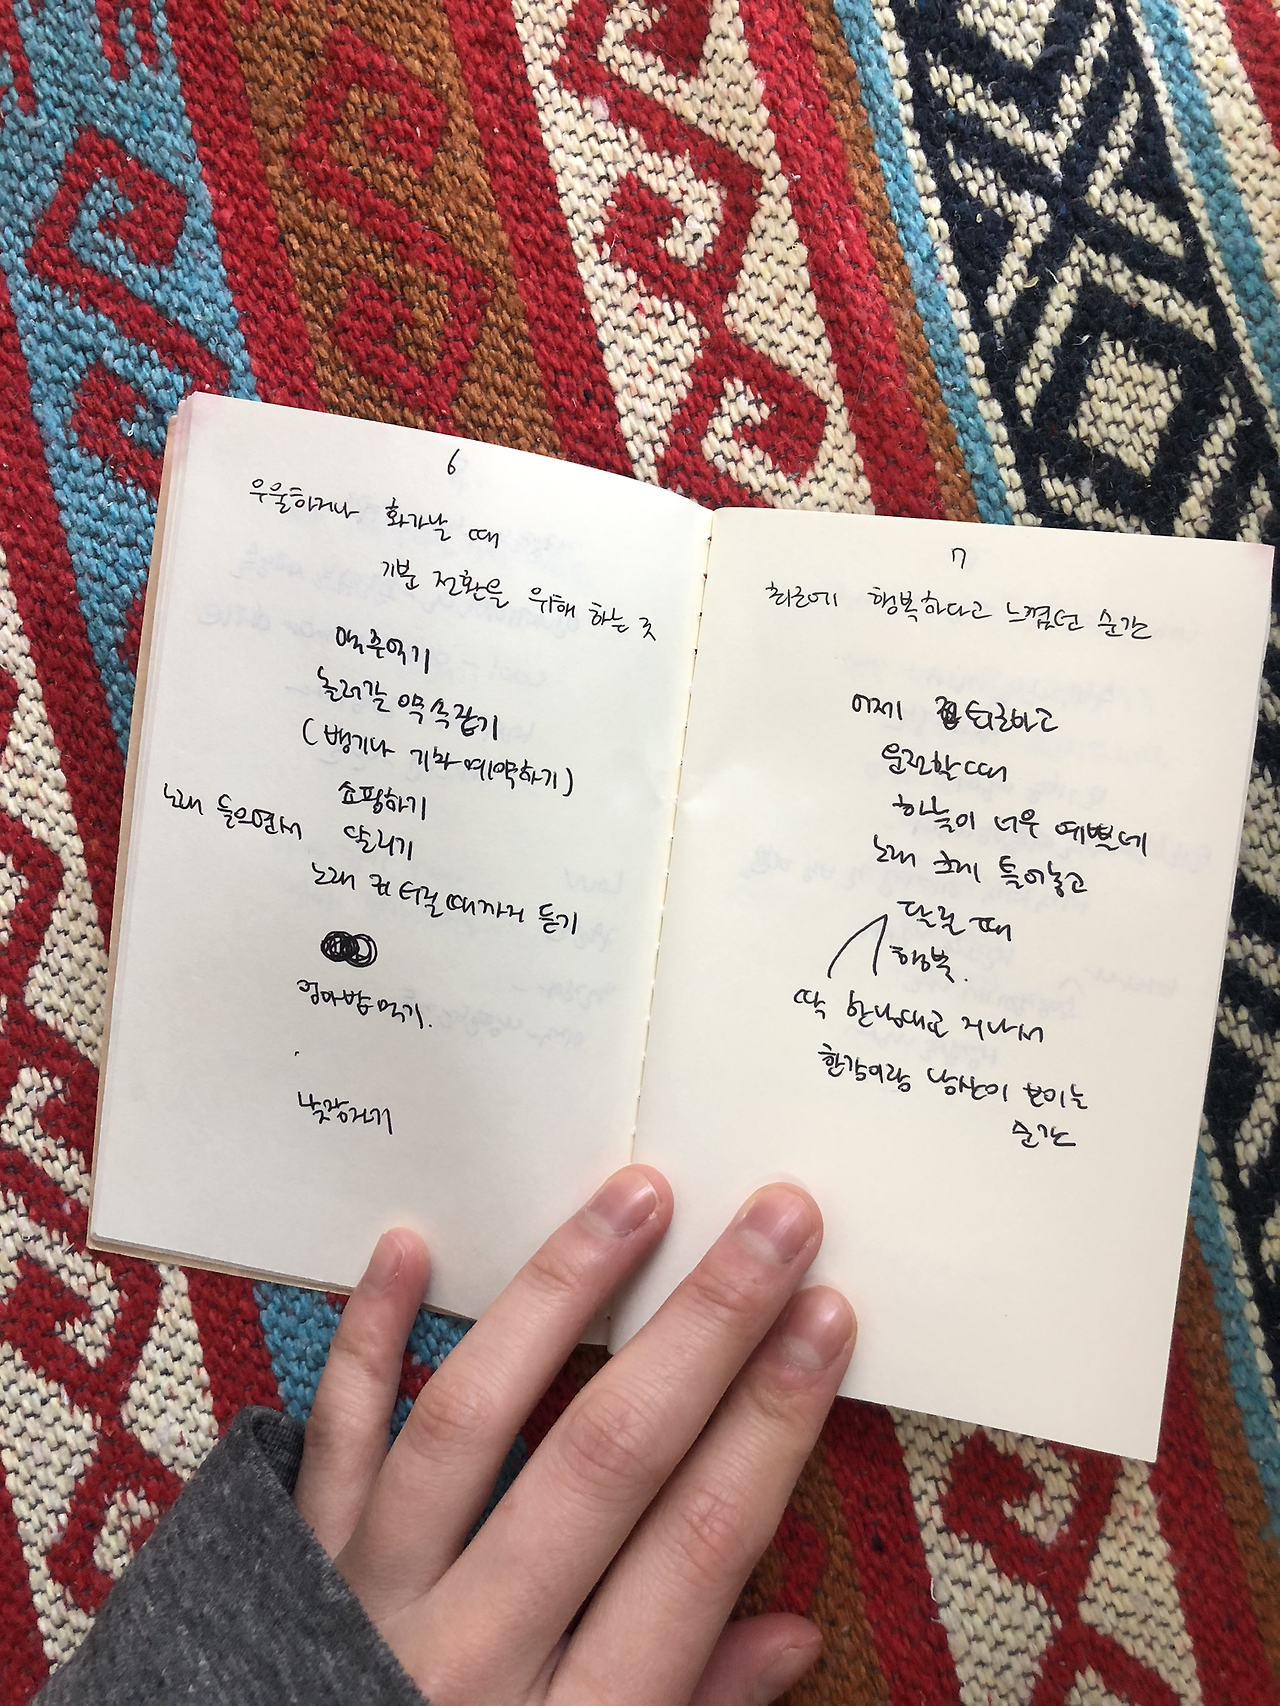 6
우울하거나 화가날 때
기분 전환을 위해 하는 것
맥주먹기
놀러갈 약속잡기
(뱅기나 기차 예약하기)
쇼핑하기
노래 들으면서 달리기
노래 귀 터질때까지 듣기
엄마밥먹기.
낮잠자기
7
최근에 행복하다고 느꼈던 순간
어제 퇴근하고
운전할때
하늘이 너무 예쁜데
노래 크게 틀어놓고
달릴 때
행복.
딱 한남대교 지나서
한강이랑 남산이 보이는
순간